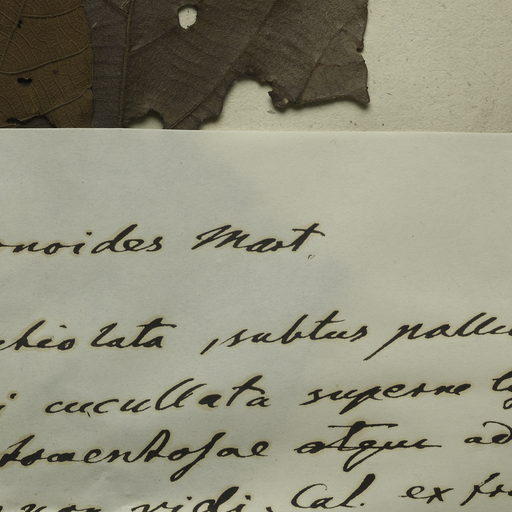 onoides Mart.
chiolata, subtus pallu
i cucullata superne
tomentosae atque ad
non vidi. Cal. ex